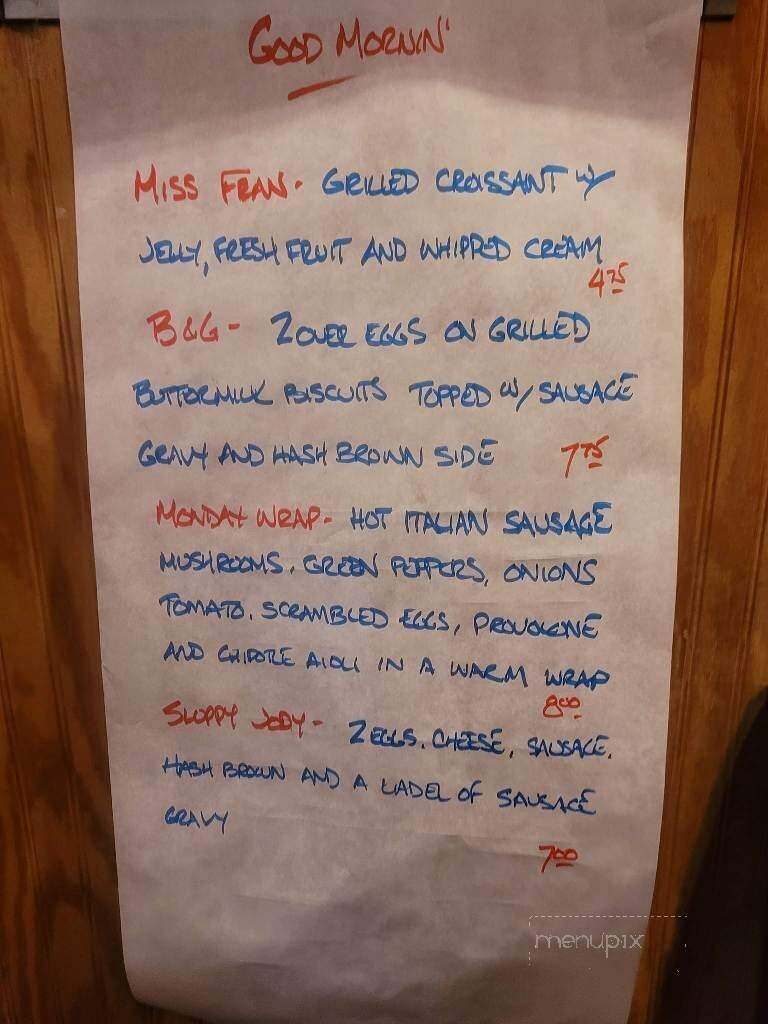 GOOD MORNIN'
MISS FRAN - GRILLED CROISSANT W/
JELLY, FRESH FRUIT AND WHIPPED CREAM
4 75
B&G - 2 OVER EGGS ON GRILLED
BUTTERMILK BISCUITS TOPPED W/ SAUSAGE
GRAVY AND HASH BROWN SIDE 7 75
MONDAY WRAP - HOT ITALIAN SAUSAGE
MUSHROOMS, GREEN PEPPERS, ONIONS
TOMATO, SCRAMBLED EGGS, PROVOLONE
AND CHIPOTLE AIOLI IN A WARM WRAP
8 00
SLOPPY JODY - 2 EGGS, CHEESE, SAUSAGE,
HASH BROWN AND A LADEL OF SAUSAGE
GRAVY
7 00
menupix